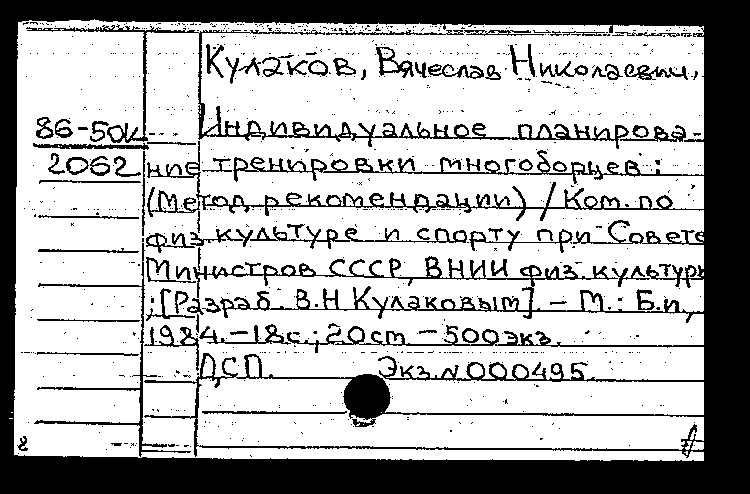 Кулаков, Вячеслав Николаевич.
86-50к Индивидуальное планирова-
2062 ние тренировки многоборцев :
(Метод. рекомендации) / Ком. по
физ. культуре и спорту при Совете
Министров СССР, ВНИИ физ. культуры
; [Разраб. В.Н Кулаковым]. - М.: Б.и.,
1984. - 18с.; 20см - 500экз.
ДСП. Экз. N000495.